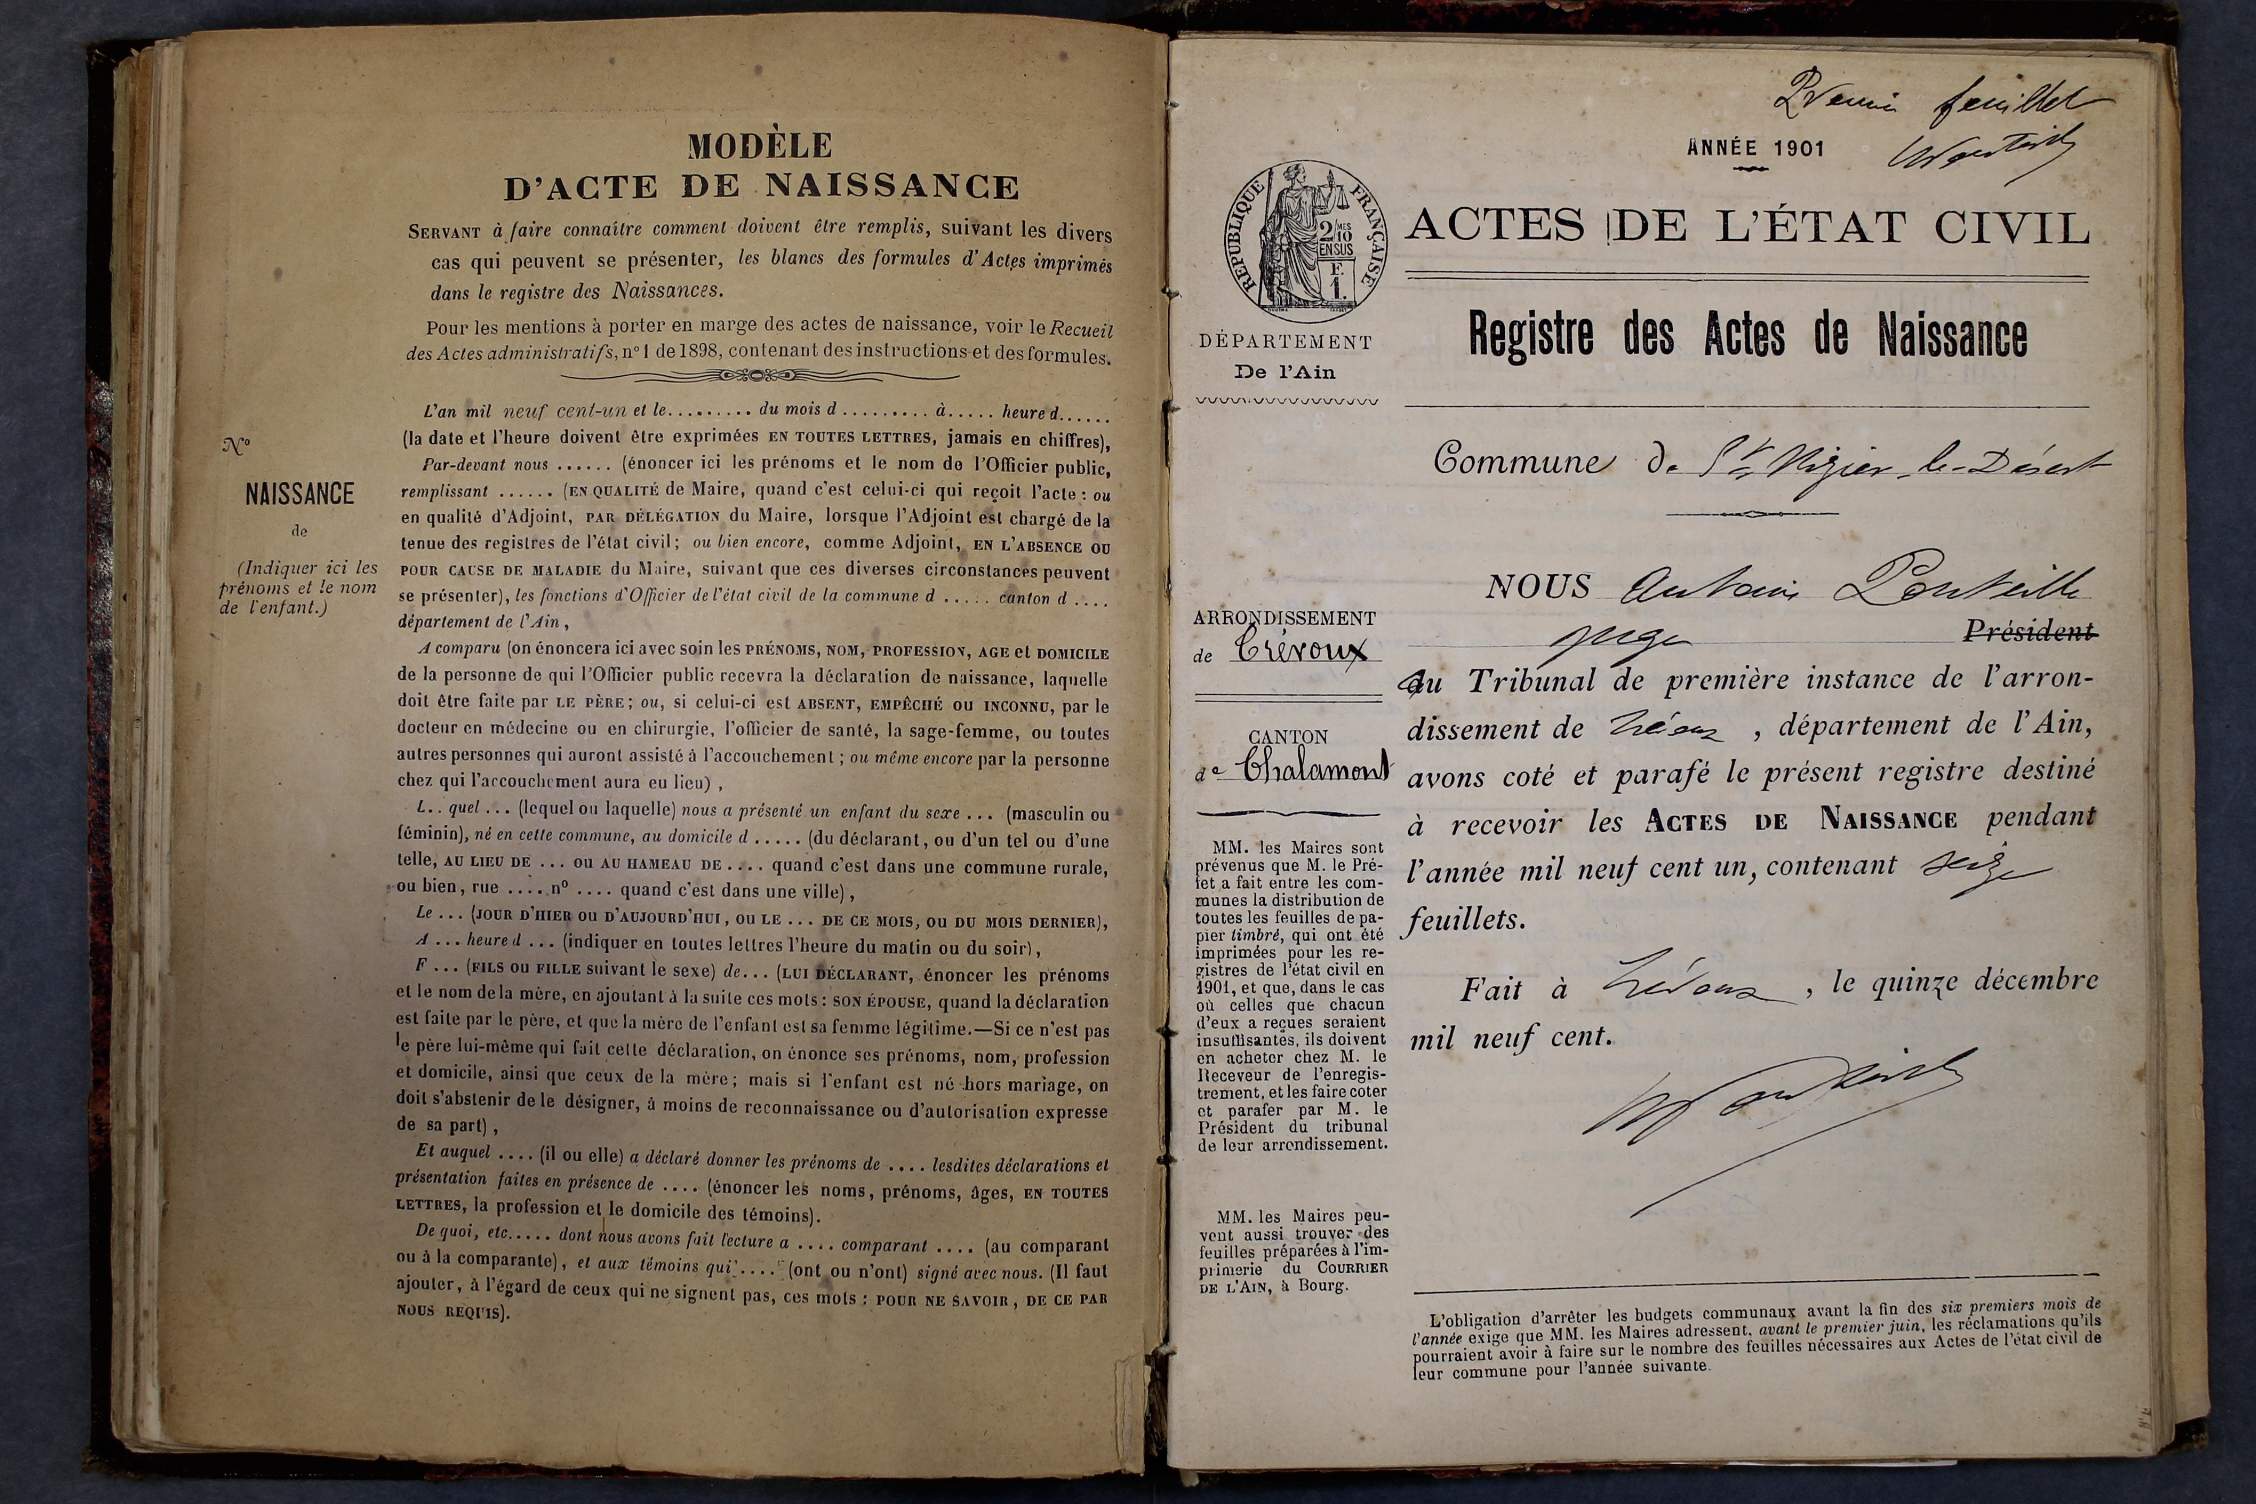 MODÈLE
D'ACTE DE NAISSANCE
SERVANT à faire connaître comment doivent être remplis, suivant les divers
cas qui peuvent se présenter, les blancs des formules d'Actes imprimés
dans le registre des Naissances.
Pour les mentions à porter en marge des actes de naissance, voir le Recueil
des Actes administratifs, n° 1 de 1898, contenant des instructions et des formules.
N°
NAISSANCE
de
(Indiquer ici les
prénoms et le nom
de l'enfant.)
L'an mil neuf cent-un et le......... du mois d ......... à..... heure d......
(la date et l'heure doivent être exprimées EN TOUTES LETTRES, jamais en chiffres),
Par-devant nous ...... (énoncer ici les prénoms et le nom de l'Officier public,
remplissant ...... (EN QUALITÉ de Maire, quand c'est celui-ci qui reçoit l'acte : ou
en qualité d'Adjoint, PAR DÉLÉGATION du Maire, lorsque l'Adjoint est chargé de la
tenue des registres de l'état civil; ou bien encore, comme Adjoint, EN L'ABSENCE OU
POUR CAUSE DE MALADIE du Maire, suivant que ces diverses circonstances peuvent
se présenter), les fonctions d'Officier de l'état civil de la commune d ..... canton d ....
département de l'Ain,
A comparu (on énoncera ici avec soin les PRÉNOMS, NOM, PROFESSION, AGE et DOMICILE
de la personne de qui l'Officier public recevra la déclaration de naissance, laquelle
doit être faite par LE PÈRE; ou, si celui-ci est ABSENT, EMPÊCHÉ OU INCONNU, par le
docteur en médecine ou en chirurgie, l'officier de santé, la sage-femme, ou toutes
autres personnes qui auront assisté à l'accouchement; ou même encore par la personne
chez qui l'accouchement aura eu lieu),
L.. quel ... (lequel ou laquelle) nous a présenté un enfant du sexe ... (masculin ou
féminin), né en cette commune, au domicile d ..... (du déclarant, ou d'un tel ou d'une
telle, AU LIEU DE ... OU AU HAMEAU DE .... quand c'est dans une commune rurale,
ou bien, rue .... n° .... quand c'est dans une ville),
Le ... (JOUR D'HIER OU D'AUJOURD'HUI, OU LE ... DE CE MOIS, OU DU MOIS DERNIER),
A ... heure d ... (indiquer en toutes lettres l'heure du matin ou du soir),
F ... (FILS OU FILLE suivant le sexe) de... (LUI DÉCLARANT, énoncer les prénoms
et le nom de la mère, en ajoutant à la suite ces mots : SON ÉPOUSE, quand la déclaration
est faite par le père, et que la mère de l'enfant est sa femme légitime.—Si ce n'est pas
le père lui-même qui fait cette déclaration, on énonce ses prénoms, nom, profession
et domicile, ainsi que ceux de la mère; mais si l'enfant est né hors mariage, on
doit s'abstenir de le désigner, à moins de reconnaissance ou d'autorisation expresse
de sa part),
Et auquel .... (il ou elle) a déclaré donner les prénoms de .... lesdites déclarations et
présentation faites en présence de .... (énoncer les noms, prénoms, âges, EN TOUTES
LETTRES, la profession et le domicile des témoins).
De quoi, etc..... dont nous avons fait lecture a .... comparant .... (au comparant
ou à la comparante), et aux témoins qui .... (ont ou n'ont) signé avec nous. (Il faut
ajouter, à l'égard de ceux qui ne signent pas, ces mots : POUR NE SAVOIR, DE CE PAR
NOUS REQUIS).
Premier feuillet
ANNÉE 1901
RÉPUBLIQUE FRANÇAISE
2/MES
10
EN SUS
F.
1.
ACTES DE L'ÉTAT CIVIL
DÉPARTEMENT
De l'Ain
Registre des Actes de Naissance
Commune de St Nizier-le-Désert
ARRONDISSEMENT
de Trévoux
CANTON
de Chalamont
NOUS Antoine Ponteille
juge Président
au Tribunal de première instance de l'arron-
dissement de Trévoux, département de l'Ain,
avons coté et parafé le présent registre destiné
à recevoir les ACTES DE NAISSANCE pendant
l'année mil neuf cent un, contenant seize
feuillets.
Fait à Trévoux, le quinze décembre
mil neuf cent.
MM. les Maires sont
prévenus que M. le Pré-
fet a fait entre les com-
munes la distribution de
toutes les feuilles de pa-
pier timbré, qui ont été
imprimées pour les re-
gistres de l'état civil en
1901, et que, dans le cas
où celles que chacun
d'eux a reçues seraient
insuffisantes, ils doivent
en acheter chez M. le
Receveur de l'enregis-
trement, et les faire coter
et parafer par M. le
Président du tribunal
de leur arrondissement.
MM. les Maires peu-
vent aussi trouver des
feuilles préparées à l'im-
primerie du COURRIER
DE L'AIN, à Bourg.
L'obligation d'arrêter les budgets communaux avant la fin des six premiers mois de
l'année exige que MM. les Maires adressent, avant le premier juin, les réclamations qu'ils
pourraient avoir à faire sur le nombre des feuilles nécessaires aux Actes de l'état civil de
leur commune pour l'année suivante.